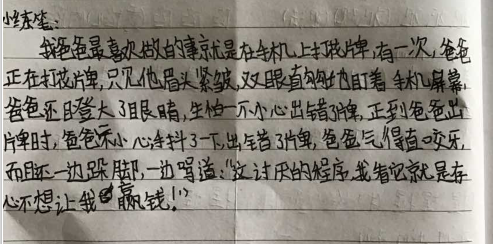 小练笔:
我爸爸最喜欢做的事就是在手机上打牌,有一次,爸爸
正在打牌,只见他眉头紧皱,双眼直勾勾地盯着手机屏幕,
爸爸还瞪大了眼睛,生怕一不小心出错了牌,正到爸爸出
牌时,爸爸不小心手抖了一下,出错了牌,爸爸气得直咬牙,
而且还一边跺脚,一边骂道:"这讨厌的程序,我看它就是存
心不想让我赢钱!"